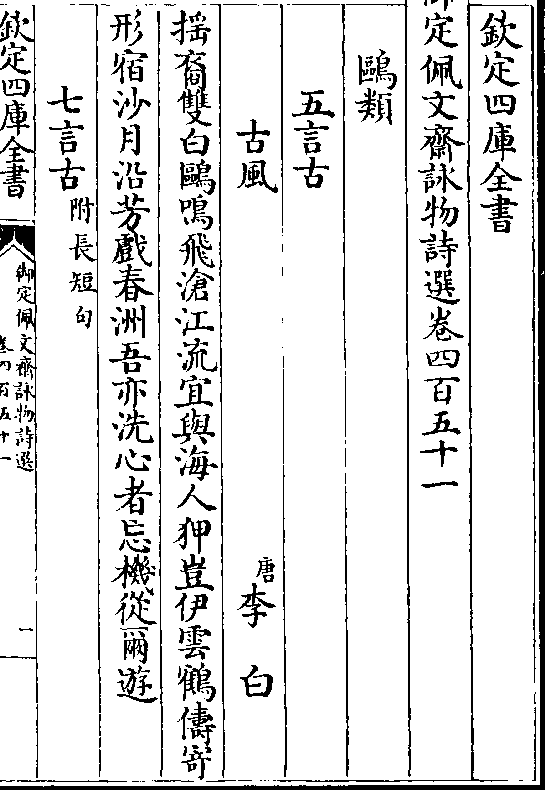 欽定四庫全書
御定佩文齋詠物詩選卷四百五十一
鷗類
五言古
古風
唐李白
摇裔雙白鷗鳴飛滄江流宜與海人狎豈伊雲鶴儔寄
形宿沙月沿芳戲春洲吾亦洗心者忘機從爾遊
七言古附長短句
欽定四庫全書
御定佩文齋詠物詩選
卷四百五十一
一